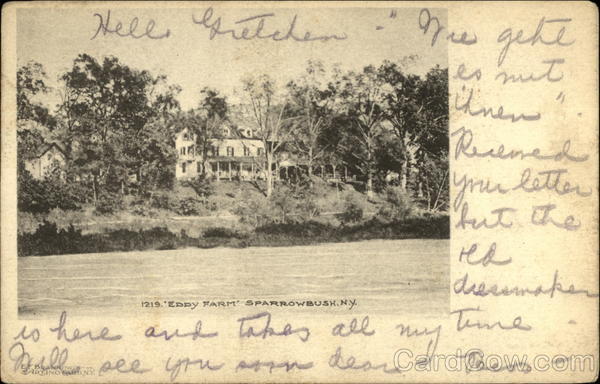 Hello Gretchen - "Wie geht
es mit
ihnen".
Received
your letter
but the
old
dressmaker
is here and takes all my time
Will see you soon dear "
1219. "EDDY FARM" SPARROWBUSH, N.Y.
CardCow.com